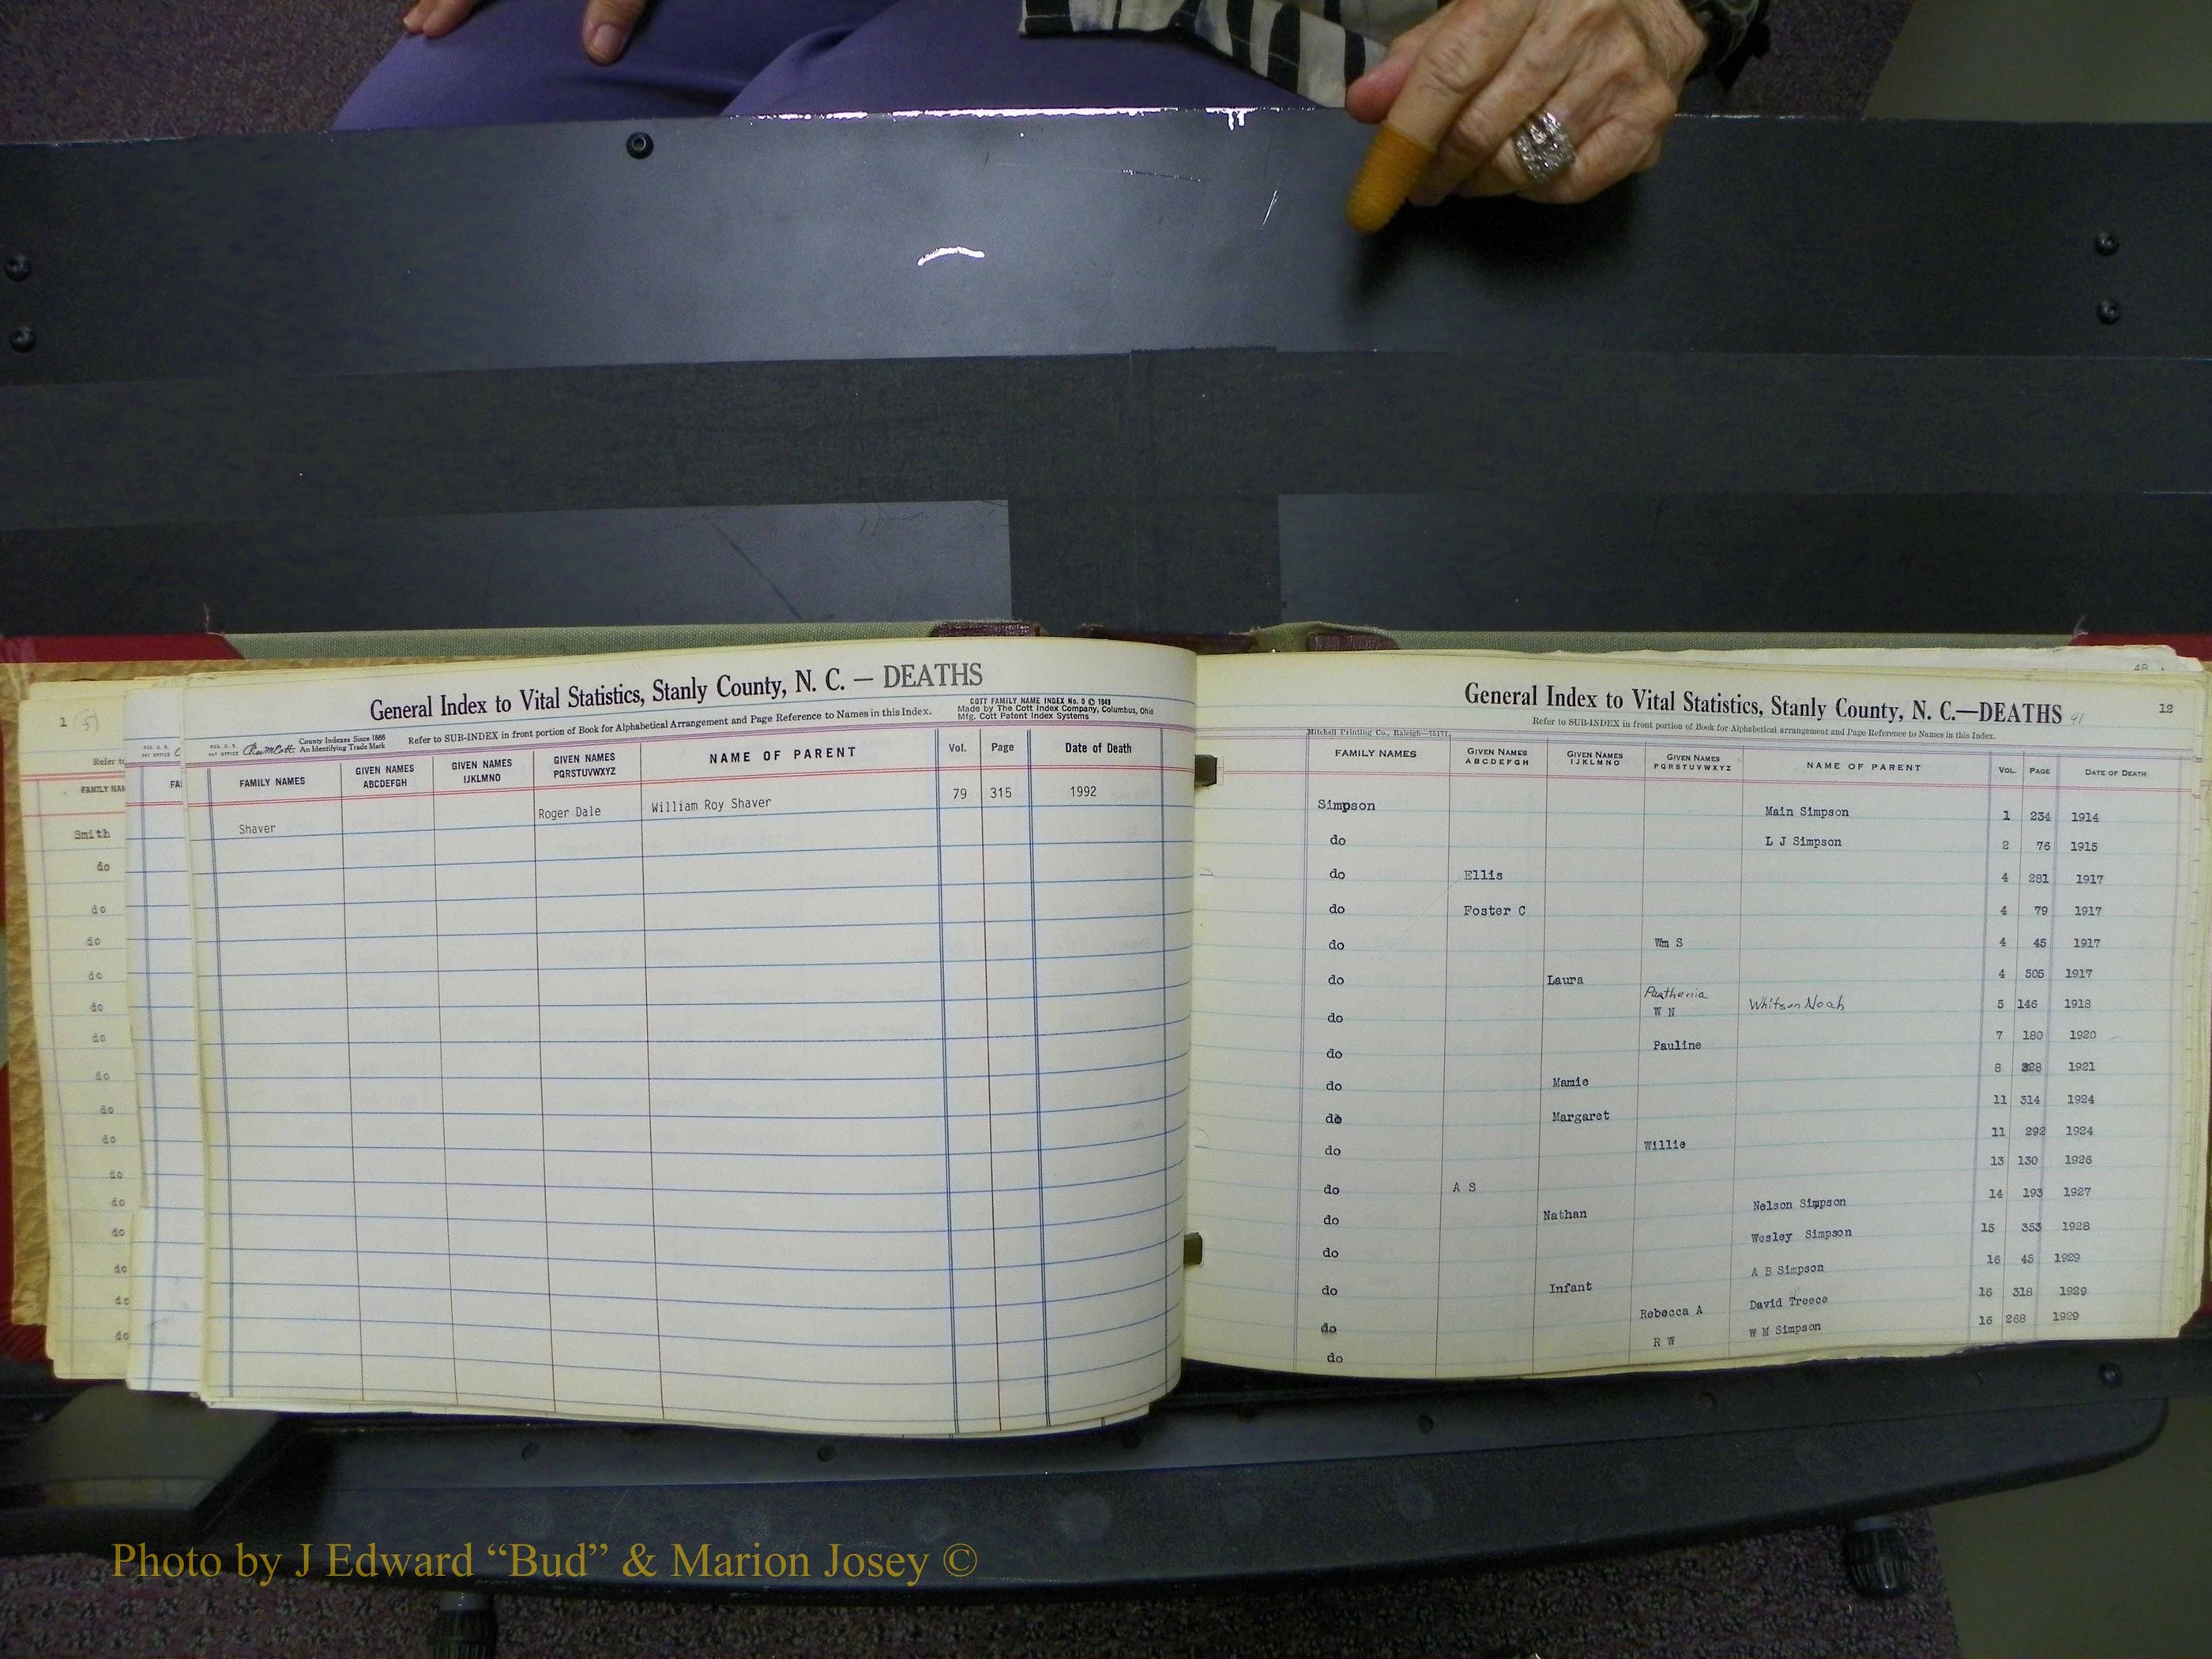 1 (5)
Refer to
FAMILY NAM
Smith
do
do
do
do
do
do
do
do
do
do
do
do
do
do
do
FA
General Index to Vital Statistics, Stanly County, N. C. — DEATHS
COTT FAMILY NAME INDEX No. 9 © 1949
Made by The Cott Index Company, Columbus, Ohio
Mfg. Cott Patent Index Systems
REG. U. S. PAT OFFICE County Indexes Since 1888 An Identifying Trade Mark
Refer to SUB-INDEX in front portion of Book for Alphabetical Arrangement and Page Reference to Names in this Index.
FAMILY NAMES GIVEN NAMES ABCDEFGH GIVEN NAMES IJKLMNO GIVEN NAMES PQRSTUVWXYZ NAME OF PARENT Vol. Page Date of Death
Shaver Roger Dale William Roy Shaver 79 315 1992
48
General Index to Vital Statistics, Stanly County, N. C.—DEATHS 41 12
Refer to SUB-INDEX in front portion of Book for Alphabetical arrangement and Page Reference to Names in this Index.
Mitchell Printing Co., Raleigh—75171
FAMILY NAMES GIVEN NAMES ABCDEFGH GIVEN NAMES IJKLMNO GIVEN NAMES PQRSTUVWXYZ NAME OF PARENT VOL. PAGE DATE OF DEATH
Simpson Main Simpson 1 234 1914
do L J Simpson 2 76 1915
do Ellis 4 281 1917
do Foster C 4 79 1917
do Wm S 4 45 1917
do Laura 4 505 1917
Parthenia
do W N Whitson Noah 5 146 1918
do Pauline 7 180 1920
do Mamie 8 328 1921
do Margaret 11 314 1924
do Willie 11 292 1924
do A S 13 130 1926
do Nathan Nelson Simpson 14 193 1927
do Wesley Simpson 15 353 1928
do Infant A B Simpson 16 45 1929
do Rebecca A David Treece 16 318 1929
do R W W M Simpson 16 268 1929
Photo by J Edward “Bud” & Marion Josey ©